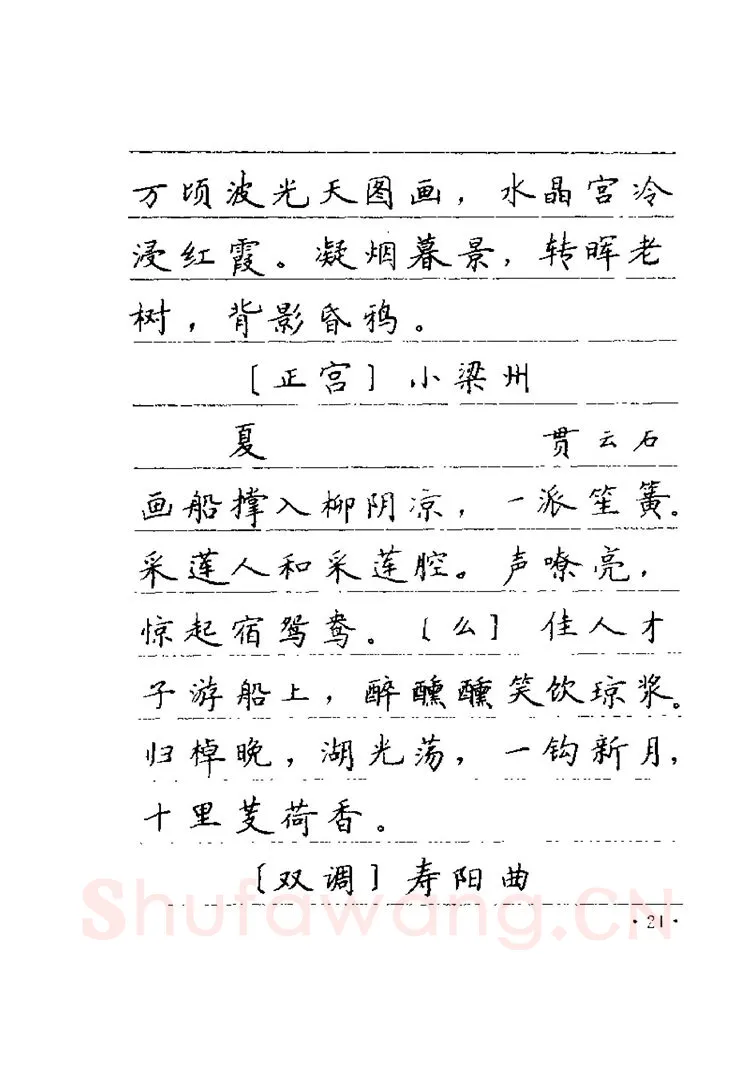 万顷波光天图画，水晶宫冷
浸红霞。凝烟暮景，转晖老
树，背影昏鸦。
［正宫］小梁州
夏 贯云石
画船撑入柳阴凉，一派笙簧。
采莲人和采莲腔。声嘹亮，
惊起宿鸳鸯。［么］佳人才
子游船上，醉醺醺笑饮琼浆。
归棹晚，湖光荡，一钩新月，
十里芰荷香。
［双调］寿阳曲
Shufawang.CN
·21·